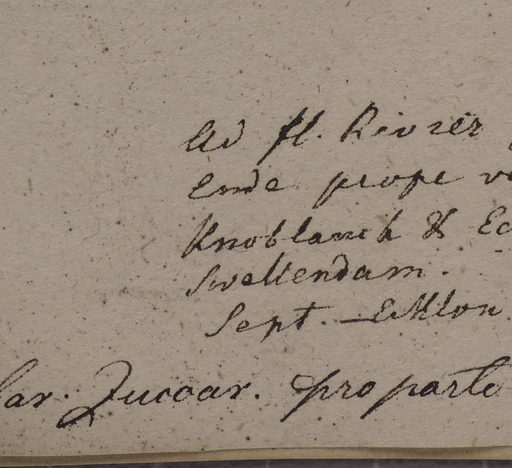 Ad fl. Rivier
Ende prope
Knoblauch & Ec
Swellendam.
Sept. - Ecklon
ar. Zucoar. pro parte